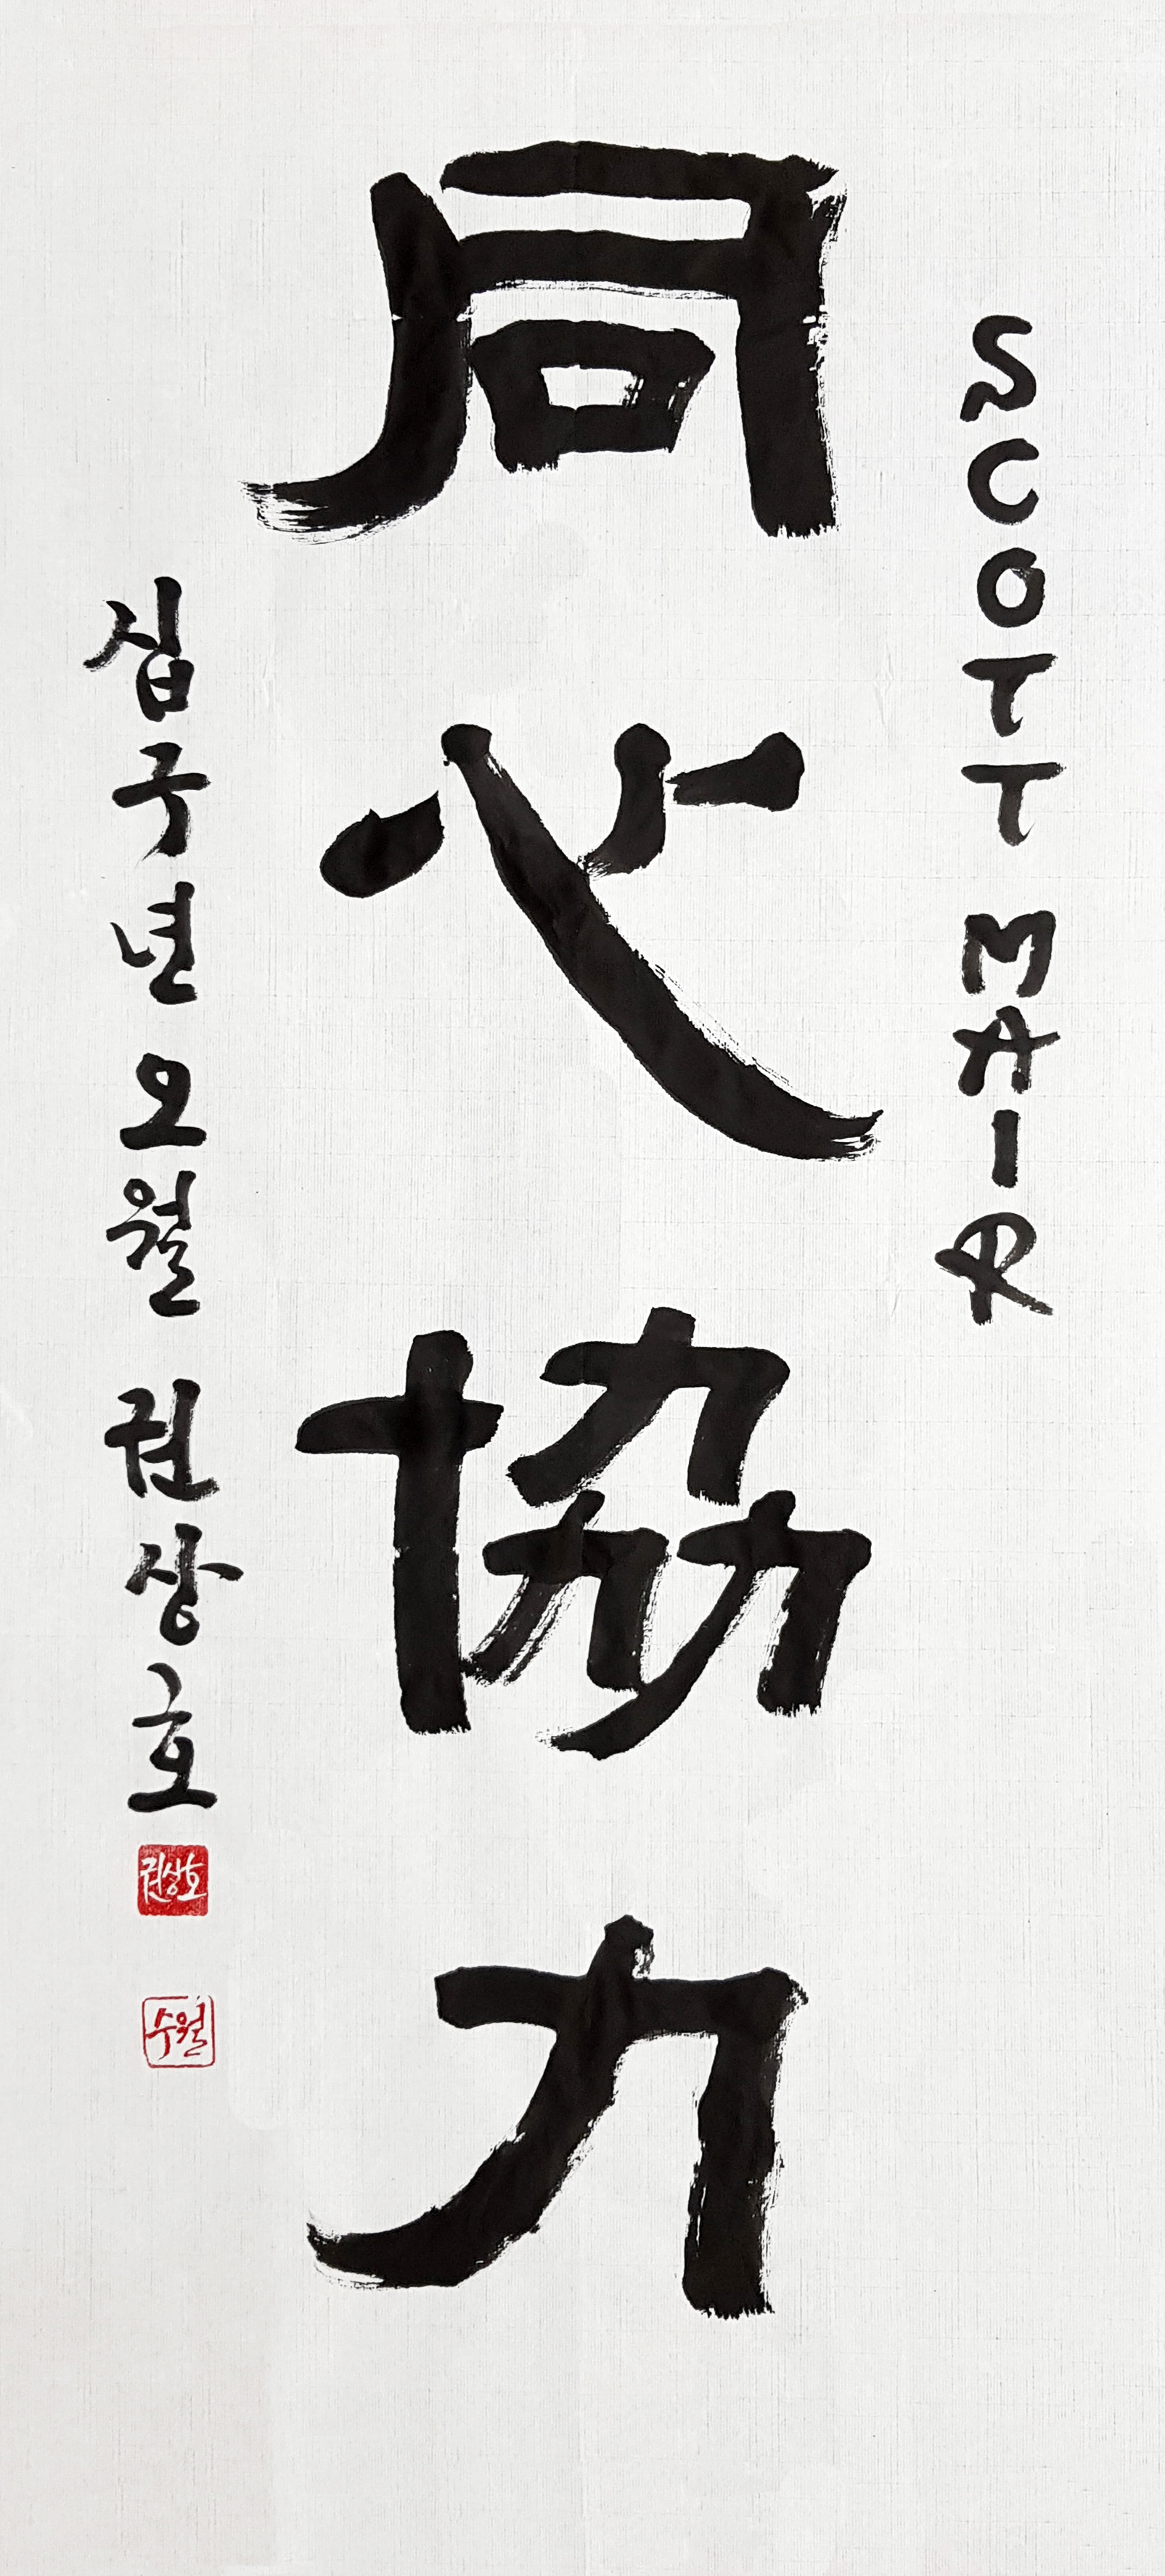 SCOTT MAIR
同心協力
십구년 오월 권상호
권상호
수월